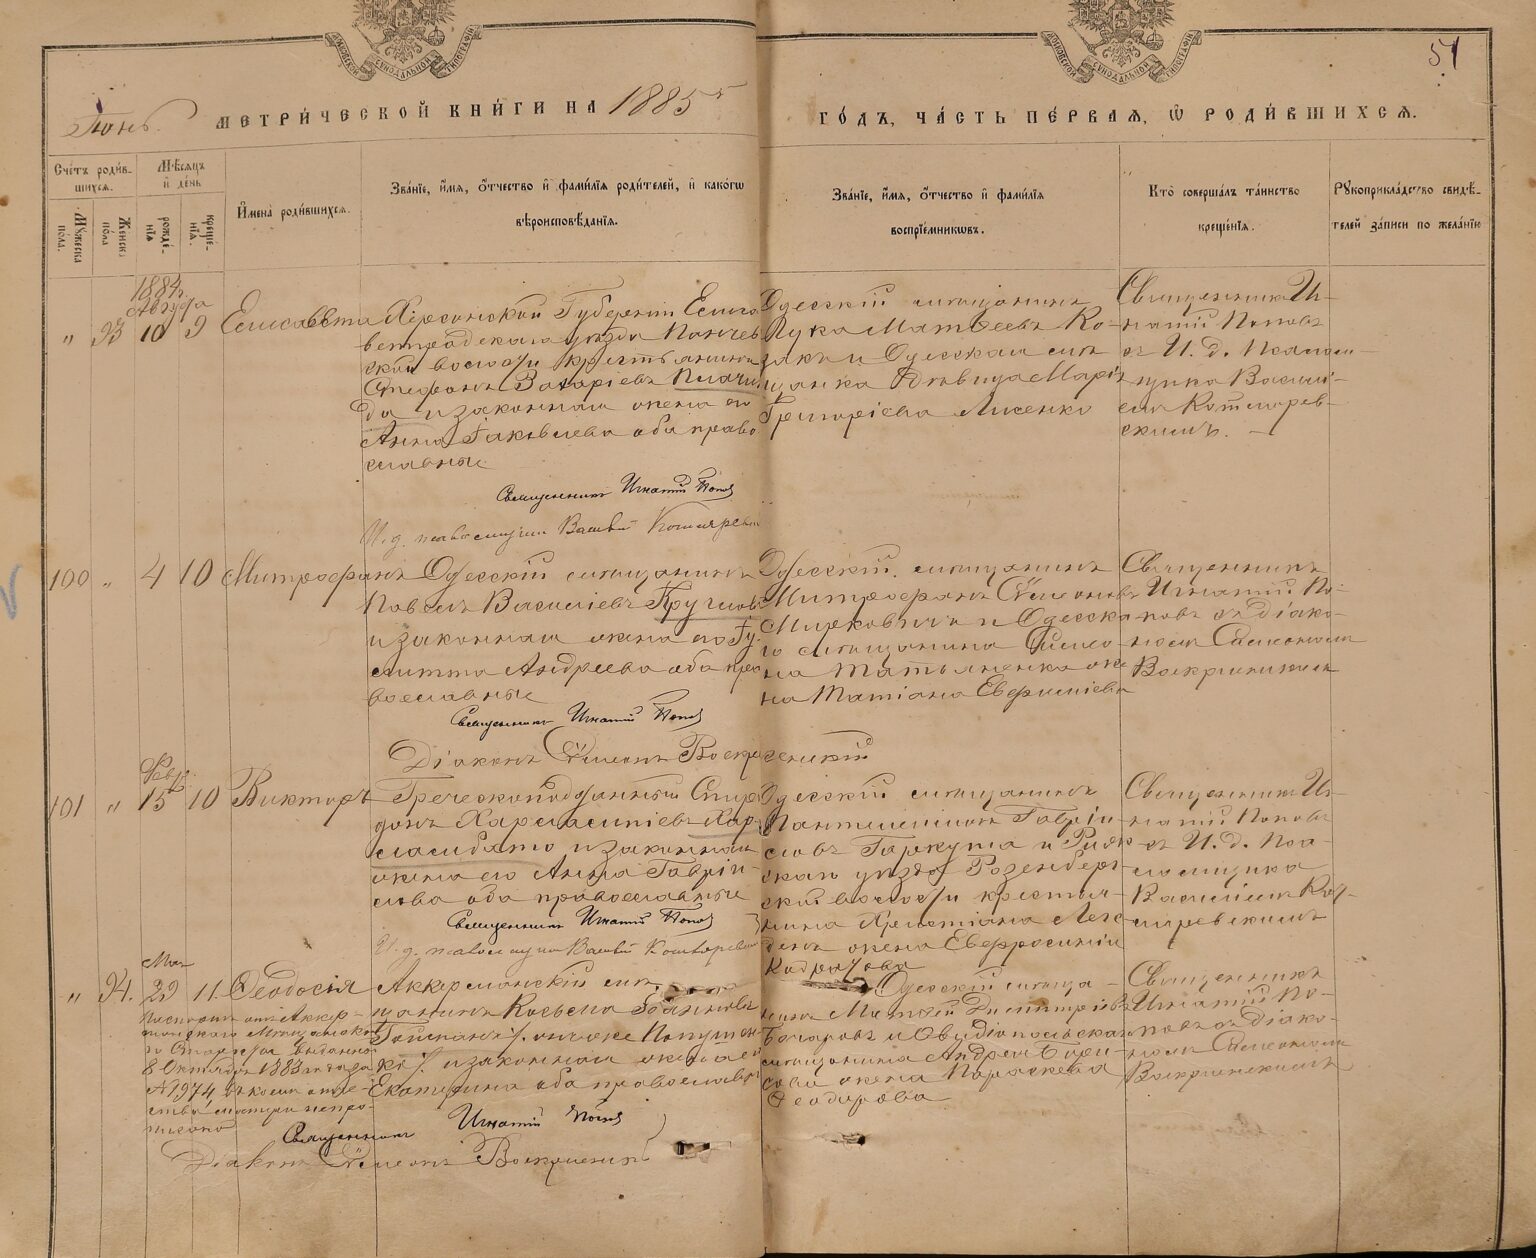 МОСКОВСКОЙ СѴНОДАЛЬНОЙ ТИПОГРАФІИ
МОСКОВСКОЙ СѴНОДАЛЬНОЙ ТИПОГРАФІИ
51
Іюнь.
МЕТРИ́ЧЕСКОЙ КНИ́ГИ НА 1885
ГО́ДЪ, ЧА́СТЬ ПЕ́РВАЯ, Ѡ҆ РОДИ́ВШИХСЯ.
Сче́тъ роди́в-
шихся.
Мѣ́сяцъ
и҆ де́нь
Мꙋ́жеска
по́ла.
Же́нска
по́ла
рожде́-
нїя
креще́-
нїя.
И҆мена̀ роди́вшихся.
Зва́нїе, и҆́мя, ѻ҆́тчество и҆ фами́лїя роди́телей, и҆ како́гѡ
вѣроисповѣ́данїя.
Зва́нїе, и҆́мя, ѻ҆́тчество и҆ фами́лїя
воспрїе́мникѡвъ.
Кто̀ соверша́лъ та́инство
креще́нїя.
Рꙋкоприкла́дство свидѣ́-
телей за́писи по жела́нїю
1884г.
Августа
" 93 10 9 Елисавета
Херсонской Губерніи Елиса
ветградскаго уѣзда Панчев
ской волости крестьянинъ
Стефанъ Захаріевъ Плачин
да и законная жена его
Анна Іаковлева оба право
славные
Священникъ Игнатій Попов
И. д. псаломщика Василій Котляревскій
Одесскій мещанинъ
Лука Матвеевъ Ко-
закъ и Одесская ме
щанка девица Марія
Григоріева Лисенко
Священникъ И-
гнатій Поповъ
съ И. д. Псалом-
щика Василі-
емъ Котлярев-
скимъ.
100 " 4 10 Митрофанъ
Одесскій мещанинъ
Павелъ Василіевъ Кругловъ
и законная жена его Іу
литта Андреева оба пра
вославные
Священникъ Игнатій Попов
Діаконъ Симеонъ Воскресенскій
Одесскій мещанинъ
Митрофанъ Симеоновъ
Мирковичъ и Одесска
го мещанина Симео
на Татьяненка же
на Татіана Евфиміева
Священникъ
Игнатій По-
повъ съ Діако-
номъ Симеономъ
Воскресенскимъ
Февр.
101 " 15 10 Викторъ
Греческоподданный Спири
донъ Харлампіевъ Хар
и законная
жена его Анна Гавріи-
лова оба православные
Священникъ Игнатій Попов
И. д. псаломщика Василій Котляревскій
Одесскій мещанинъ
Пантелеимонъ Гавріи-
ловъ Гаркуша и
скаго уѣзда Розенберг
ской волости крестья-
нина Христіана
жена Евфросинія
Священникъ Иг-
натій Поповъ
съ И. д. Пса-
ломщика
Василіемъ Кот-
ляревскимъ
Мая
" 94. 29 11. Ѳеодосія
Паспортъ отъ Аккер-
манскаго Мещанска-
го Старосты выданный
8 Октября 1883 года
№ 1974,
Аккерманскій ме-
щанинъ Косьма Іоанновъ
и законная жена его
Екатерина оба православные
Священникъ Игнатій Попов
Діаконъ Симеонъ Воскресенскій
Одесскій меща-
нинъ Матвей Димитріевъ
Бочаровъ и Овидіопольскаго
мещанина Андрея
жена Параскева
Ѳеодорова
Священникъ
Игнатій По-
повъ съ Діако-
номъ Симеономъ
Воскресенскимъ